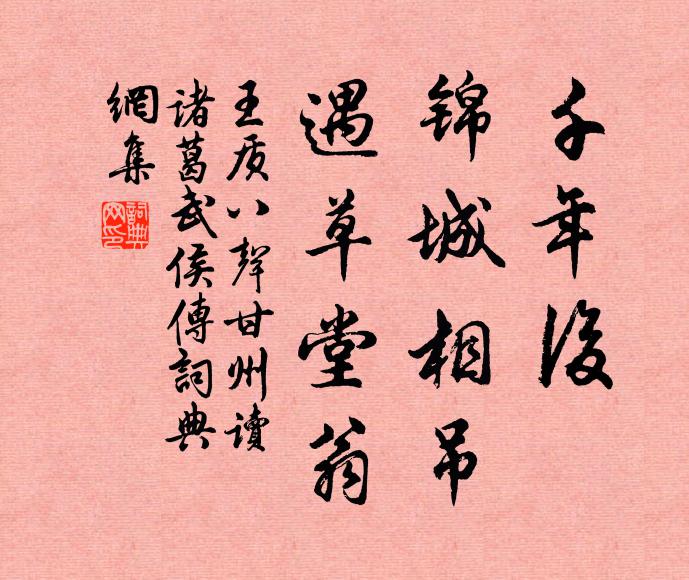 千年後
錦城相吊
遇草堂翁
王质八聲甘州讀
諸葛武侯傳詞典
網集
詞典
网印